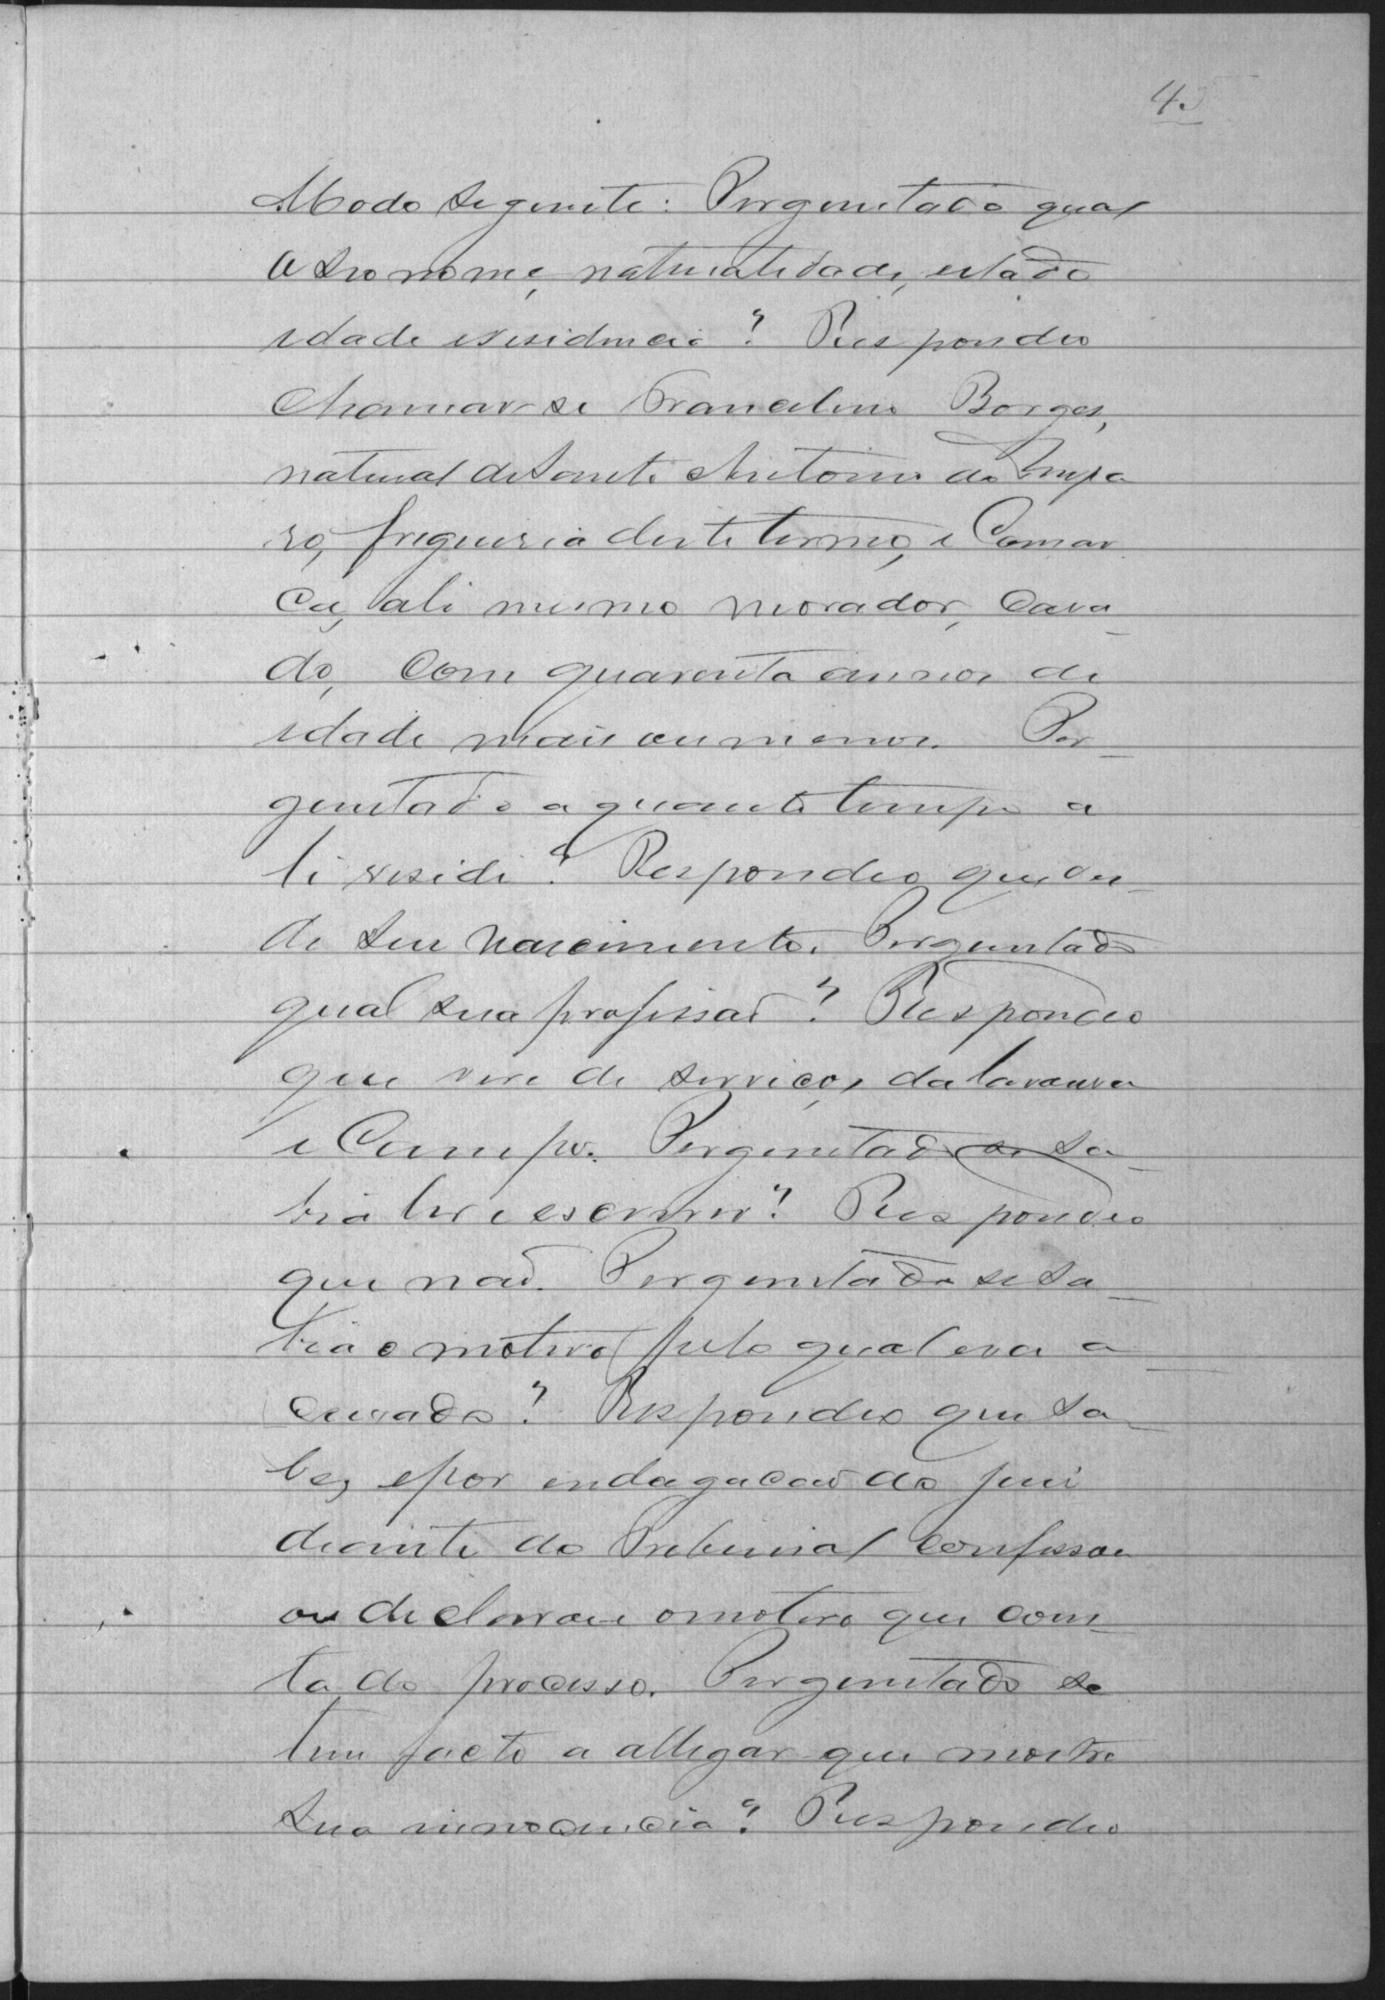 45
Modo seguinte: Perguntado qual
o seo nome, naturalidade, estado
idade e residencia? Respondeo
chamar-se Francelino Borges,
natural de Santo Antonio do Ampa
ro, freguesia deste termo, e Comar
ca, ali mesmo morador, casa_
do, com quarenta annos de
idade mais ou menos. Per_
guntado a quanto tempo a
li reside? Respondeo que des_
de seu nascimento. Perguntado
qual sua profissaõ? Respondeo
que vive de serviços da lavoura
e Campo. Perguntado se sa_
bia ler e escrever? Respondeo
que naõ. Perguntado se sa_
bia o motivo pelo qual era a_
cusado? Respondeo que sa_
be, e por indagacaõ do juis
deante do Tribunal confessou
ou declarou o motivo que cons_
ta do processo. Perguntado se
tem facto a allegar que mostre
sua innocencia? Respondeo